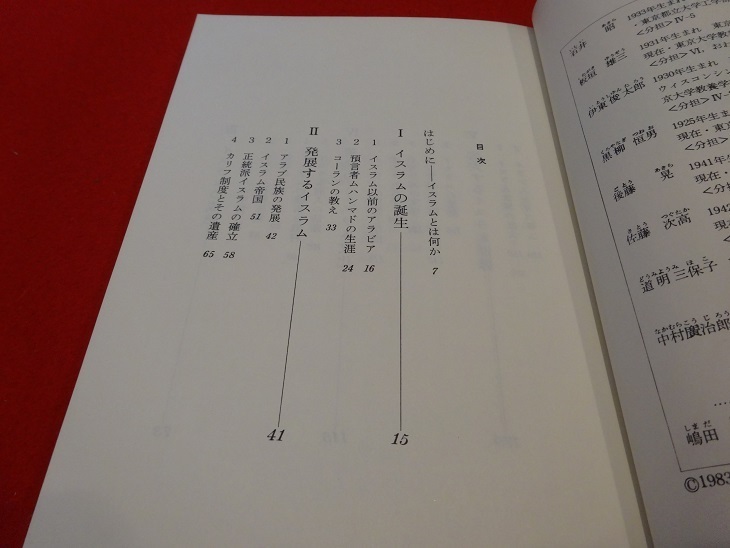 目次
はじめに──イスラムとは何か 7
I イスラムの誕生 15
1 イスラム以前のアラビア 16
2 預言者ムハンマドの生涯 24
3 コーランの教え 33
II 発展するイスラム 41
1 アラブ民族の発展 42
2 イスラム帝国 51
3 正統派イスラムの確立 58
4 カリフ制度とその遺産 65
昭 1933年生まれ
・東京都立大学工学部
<分担>IV-5
板垣雄三 1931年生まれ 東京
現在・東京大学教
<分担>VI,
伊東俊太郎 1930年生まれ
ウィスコンシン
京大学教養学
<分担>IV-
黒柳恒男 1925年生ま
現在・東京
<分担>
後藤晃 1941年
現在・
佐藤次高 1942
現
道明三保子
中村廣治郎
嶋田
©1983